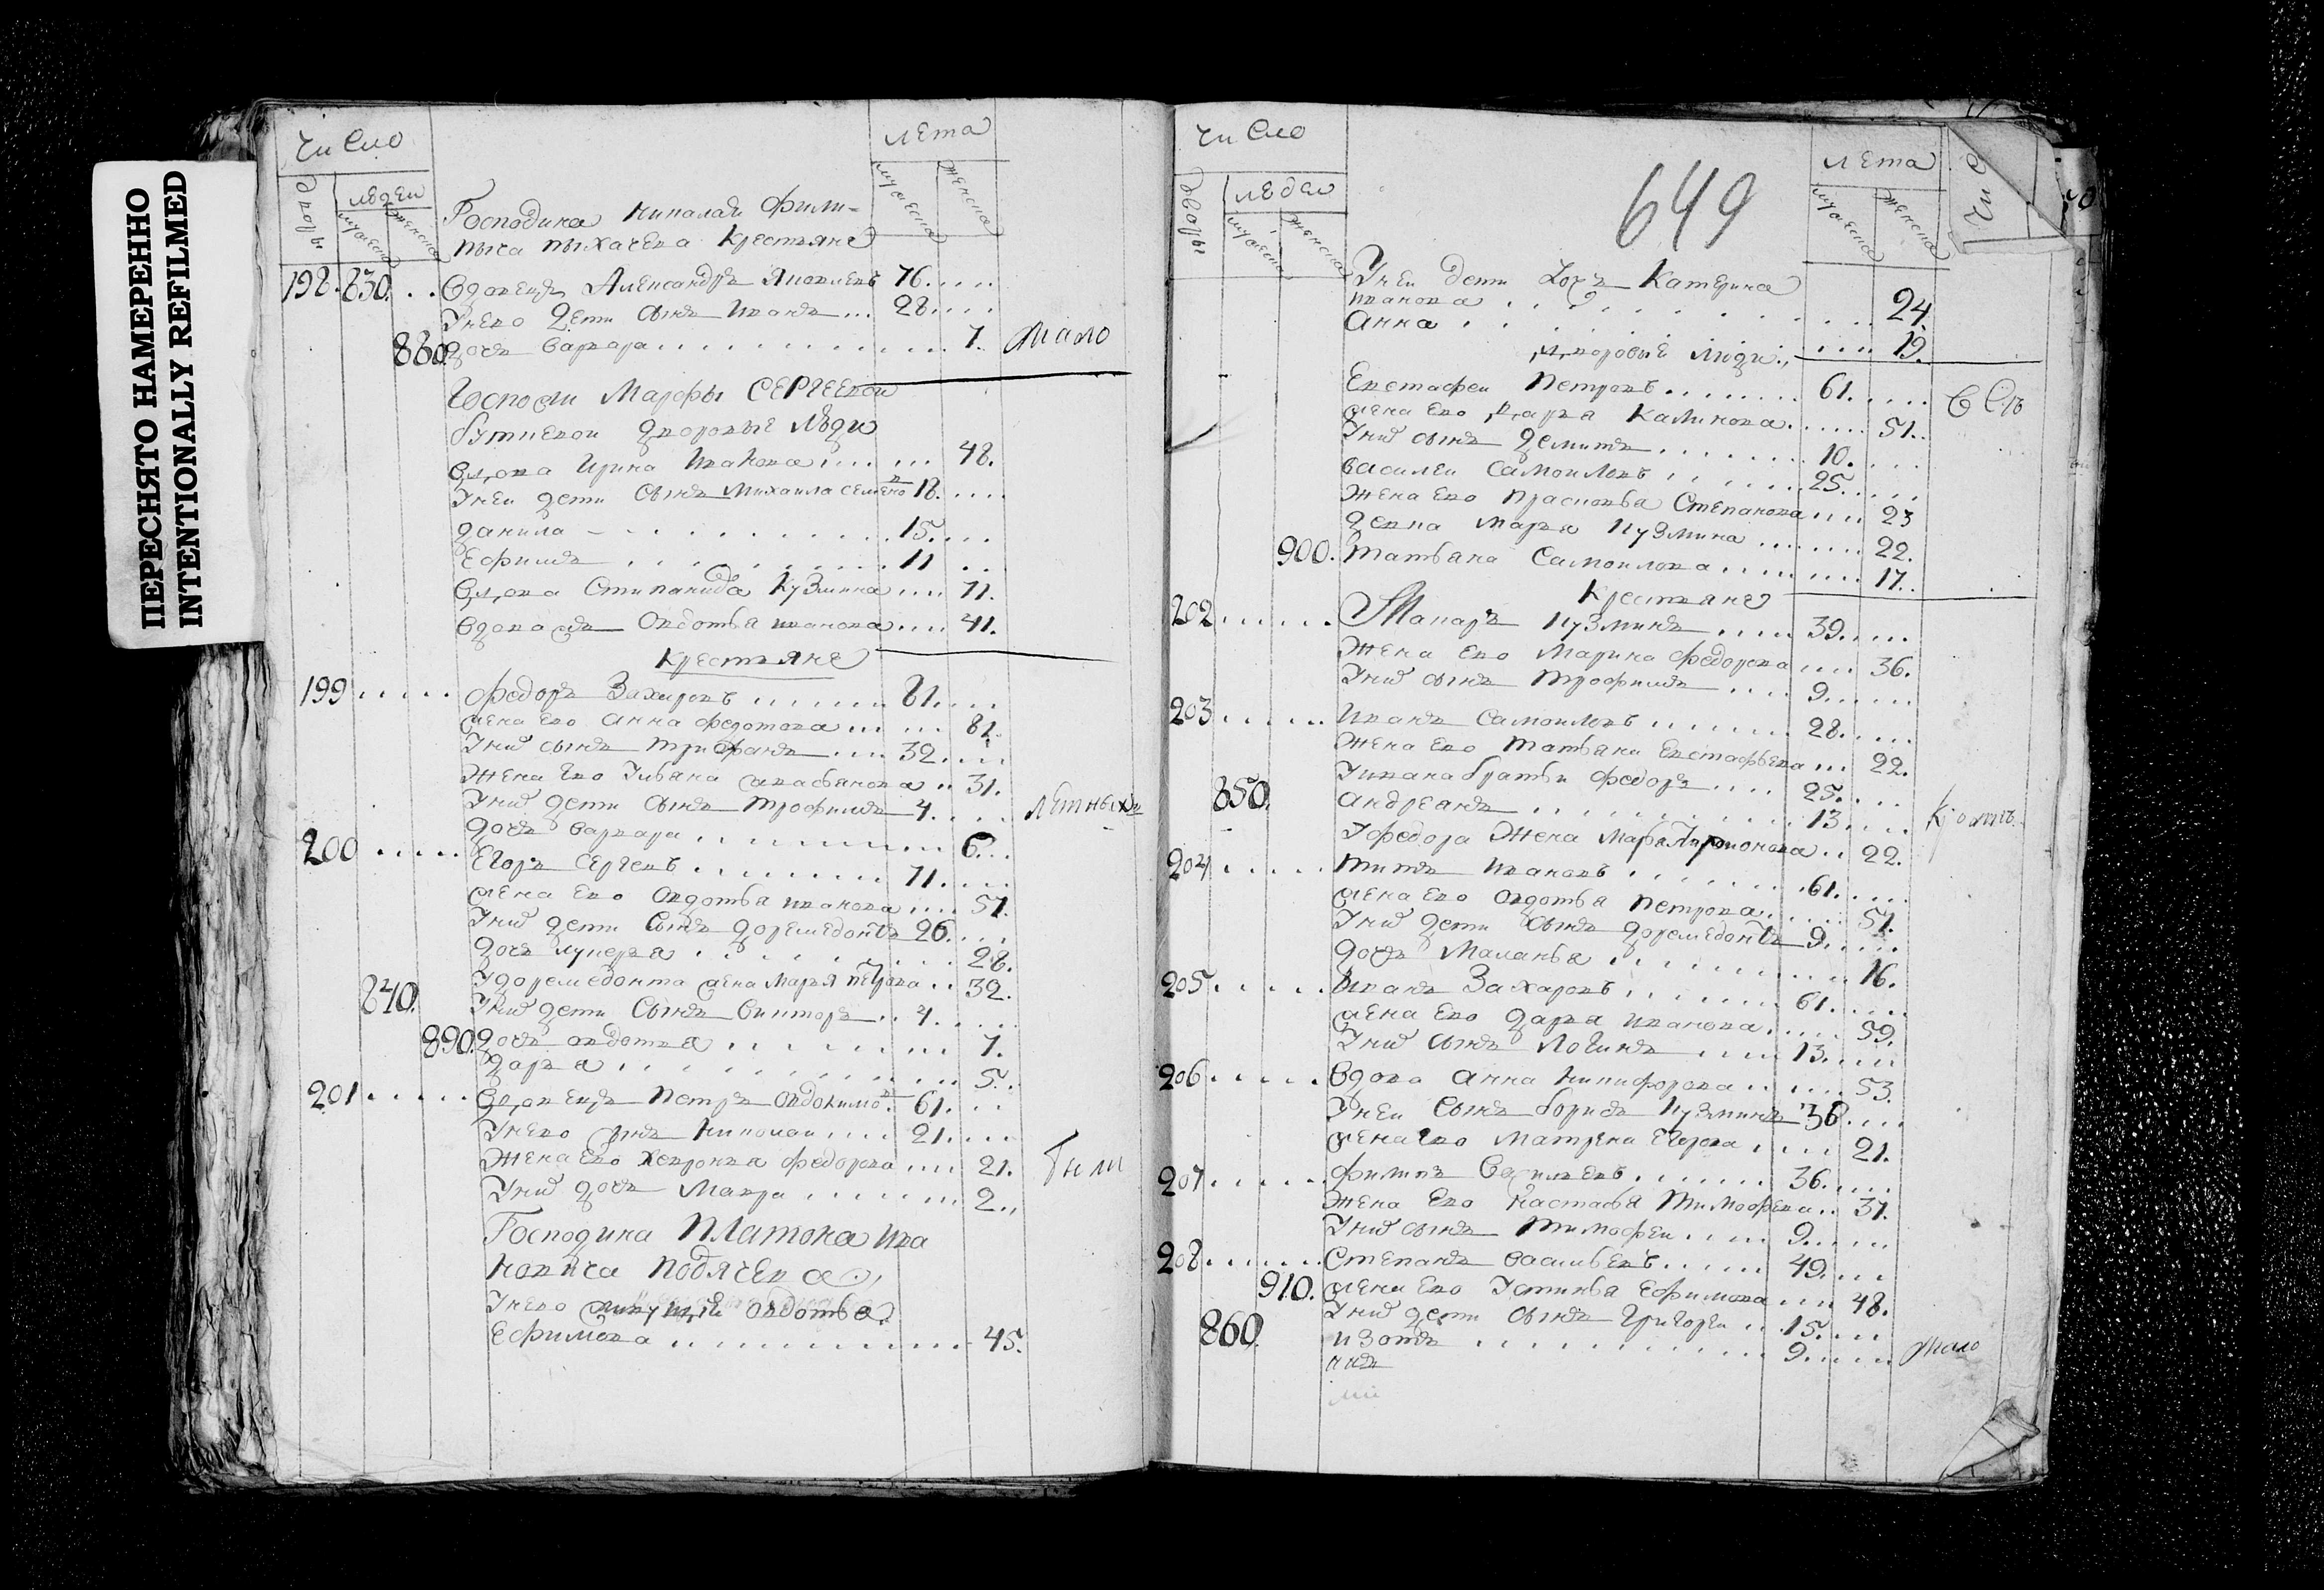 ПЕРЕСНЯТО НАМЕРЕННО
INTENTIONALLY REFILMED
число
лета
дворы
людеи
мужеска
женска
мужеска
женска
Господина николая Фили-
пыча пыхачева крестьяне
198. 830. вдовецъ Александръ Яковлевъ 76.
Унево дети сынъ иванъ 28.
880. дочь варвара 7. мало
Госпожи Марфы СЕРГЕЕвои
дворовые люди
вдова Ирина Иванова 48.
Унеи дети сынъ михаила семено 18.
данила 15.
Ефимъ 11
вдова Степанида кузмина 71.
вдова Овдотья иванова 41.
крестьяне
199 федоръ Захаровъ 81.
жена ево анна федотова 81.
Уних сынъ трифанъ 32.
Жена ево Ульяна 31.
Уних дети сынъ трофимъ 4. летныхъ
дочь варвара 6.
200 Егоръ сергеевъ 71.
жена ево овдотья иванова 57.
Уних дети сынъ доремедонтъ 26.
дочь лукерья 28.
Удоремедонта жена марья петрова 32.
840. Уних дети сынъ викторъ 4.
890. дочь овдотья 7.
дарья 5.
201 вдовецъ Петръ овдокимо 61.
Унево сынъ николаи 21.
Жена ево хевронья федорова 21. были
Уних дочь мавра 2.
Господина Платона ива
новича подячева
Унево живущей овдотья
Ефимова 45.
649
число
лета
дворы
людеи
мужеска
женска
мужеска
женска
Унеи дети дочь катерина
иванова 24.
анна 19.
дворовые люди
Евстафеи петровъ 61.
жена ево дарья калинова 51.
Уних сынъ демитъ 10.
василеи самоиловъ 25.
Жена ево прасковья Степанова 23
девка марья кузмина 22.
900. татьяна самоилова 17.
крестьяне
202 Макаръ кузминъ 39.
Жена ево марина федорова 36.
Уних сынъ трофимъ 9.
203 иванъ самоиловъ 28.
Жена ево татьяна Евстафьева 22.
Уивана братьи федоръ 25.
850. андреянъ 13
Уфедора Жена марья 22.
204 титъ ивановъ 61.
жена ево овдотья петрова 57.
Уних дети сынъ доремедонтъ 9.
дочь маланья 16.
205 иванъ Захаровъ 61.
жена ево дарья иванова 59.
Уних сынъ логинъ 13.
206 вдова анна никифорова 53.
Унеи сынъ борисъ кузминъ 36
жена ево матрена егорова 21.
207 филипъ васильевъ 36.
Жена ево настасья тимофеева 37.
Уних сынъ тимофеи 9.
208 степанъ васильевъ 49.
910. жена ево Устинья ефимова 48.
Уних дети сынъ григореи 15.
860. изотъ 9. мало